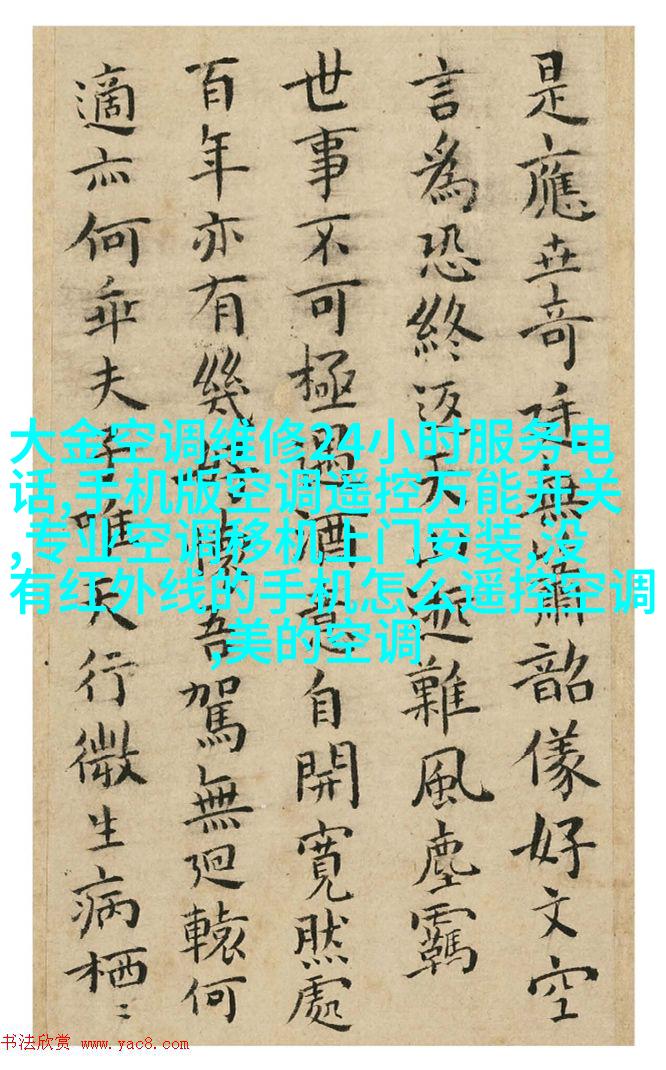 是應世奇廷無簫韶儀好文空
言為恐終返天山邈難風塵羈
世事不可極遇酒意自開寬然處
百年亦有幾時勝吾駕無迴轅何
適亦何乖夫子唯天行微生病栖〻
大金空调维修24小时服务电
话,手机版空调遥控万能开关
,专业空调移机上门安装,没
有红外线的手机怎么遥控空调
,美的空调
书法欣赏 www.yac8.com